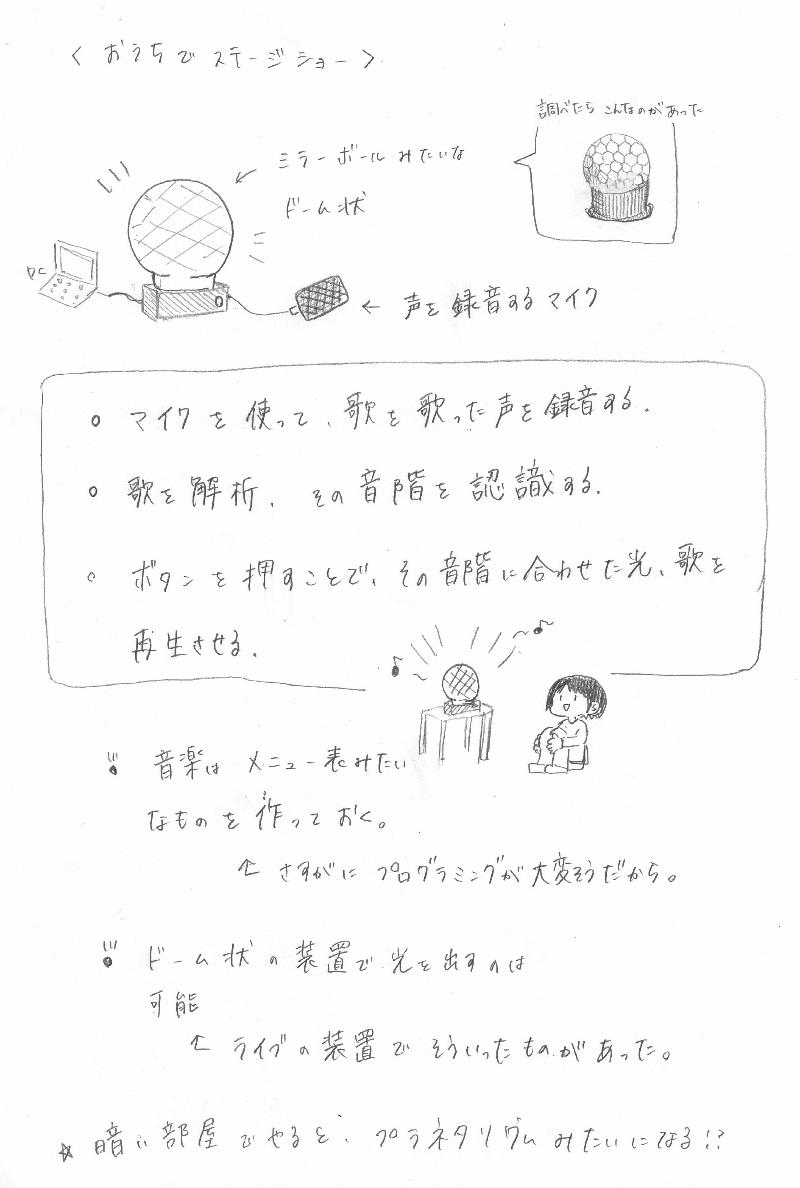 < おうちで ステージショー >
調べたら こんなのがあった
ミラーボール みたいな
ドーム状
PC
← 声を録音するマイク
○ マイクを使って、歌を歌った声を録音する.
○ 歌を解析、その音階を認識する.
○ ボタンを押すことで、その音階に合わせた光、歌を
再生させる.
音楽は メニュー表みたい
なものを作っておく。
← さすがに プログラミングが大変そうだから。
ドーム状の装置で光を出すのは
可能
← ライブの装置で そういったものがあった。
☆ 暗い部屋でやると、プラネタリウムみたいになる!?